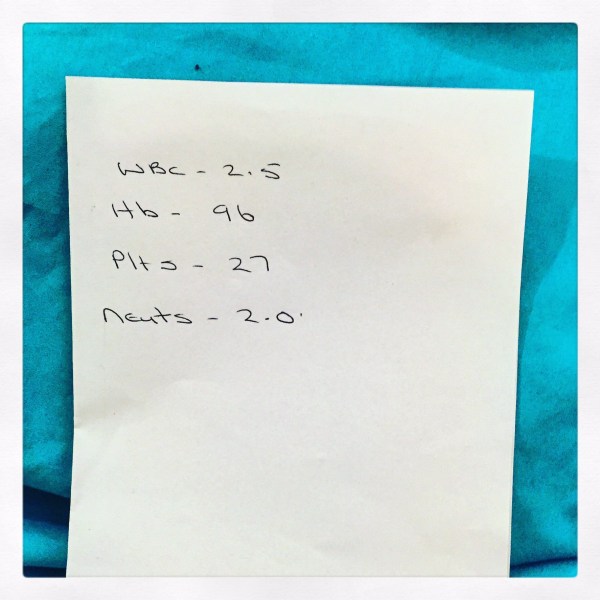 WBC - 2.5
Hb - 96
Plts - 27
Neuts - 2.0.